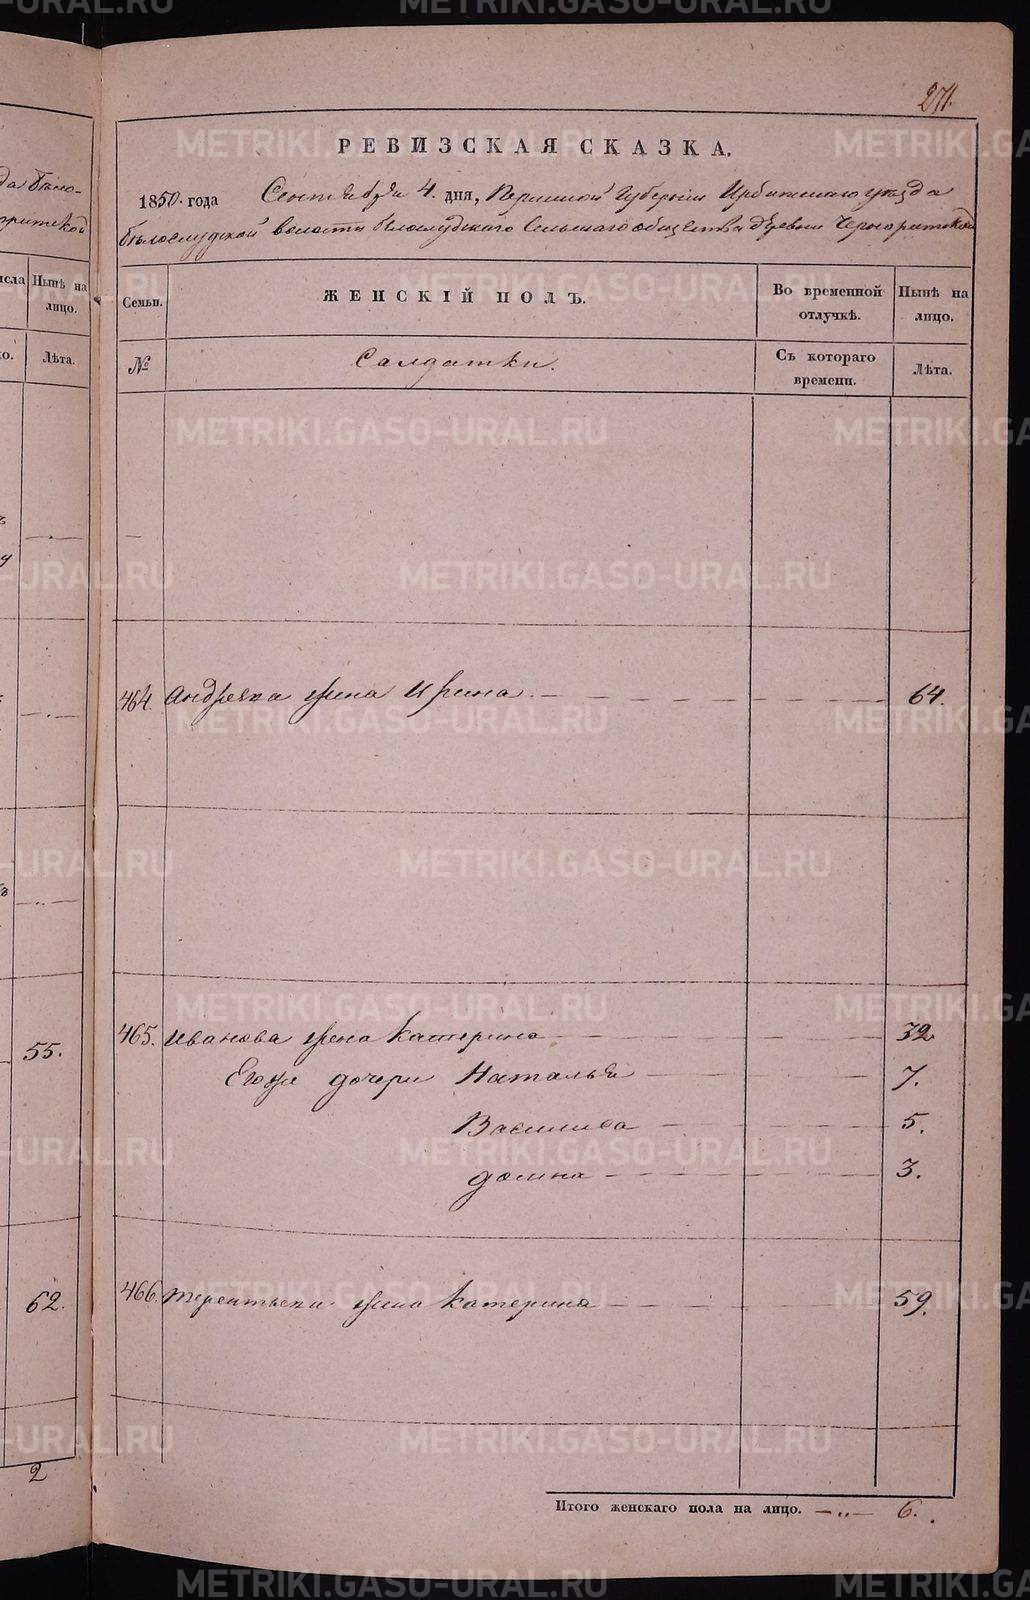 271.
РЕВИЗСКАЯ СКАЗКА.
1850. года Сентября 4. дня, Пермской Губернии Ирбитскаго уезда
белослудской волости белослудскаго Сельскаго общества деревни Чернорицкой
да бело-
рритской
Семьи.
ЖЕНСКІЙ ПОЛЪ.
Во временной отлучкѣ.
Нынѣ на лицо.
исла
Нынѣ на лицо.
№
Салдатки.
Съ котораго времени.
Лѣта.
ко.
Лѣта.
464. Андреева жена Ирина — — — 64.
465. Иванова жена Катерина — — — 32
55.
Егоже дочери Наталья — — — 7.
Василиса — — — 5.
Домна — — — 3.
466. Терентьева жена Катерина — — — 59.
62.
2
Итого женскаго пола на лицо. —„— 6.
METRIKI.GASO-URAL.RU